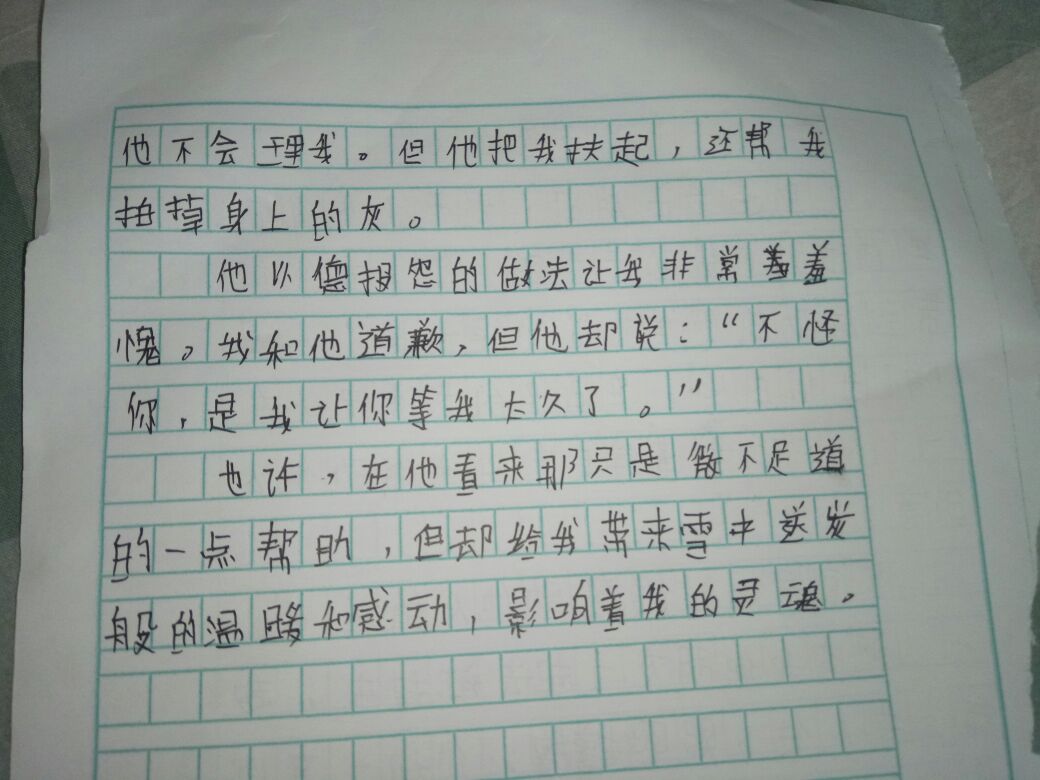 他不会理我。但他把我扶起，还帮我
拍掉身上的灰。
他以德报怨的做法让我非常羞羞
愧。我和他道歉，但他却说：“不怪
你，是我让你等我太久了。”
也许，在他看来那只是微不足道
的一点帮助，但却给我带来雪中送炭
般的温暖和感动，影响着我的灵魂。